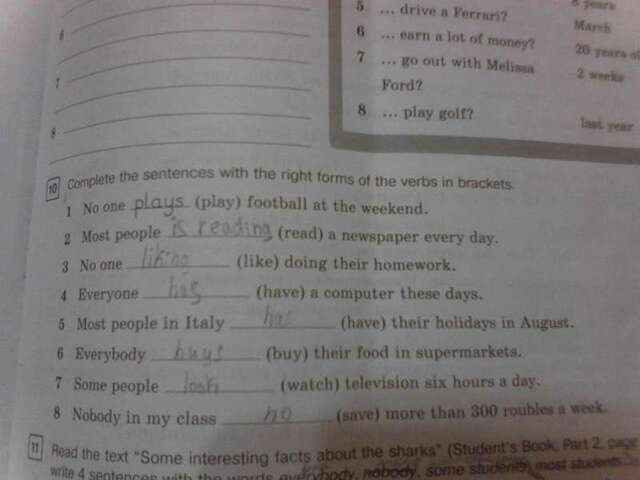 5 ... drive a Ferrari? 8 years
6 ... earn a lot of money? March
6
7 ... go out with Melissa 20 years
Ford? 2 weeks
7
8 ... play golf? last year
8
10 Complete the sentences with the right forms of the verbs in brackets.
1 No one plays (play) football at the weekend.
2 Most people is reading (read) a newspaper every day.
3 No one liking (like) doing their homework.
4 Everyone has (have) a computer these days.
5 Most people in Italy has (have) their holidays in August.
6 Everybody buys (buy) their food in supermarkets.
7 Some people (watch) television six hours a day.
8 Nobody in my class no (save) more than 300 roubles a week.
11 Read the text "Some interesting facts about the sharks" (Student's Book, Part 2, page
write 4 sentences with the words everybody, nobody, some students, most students